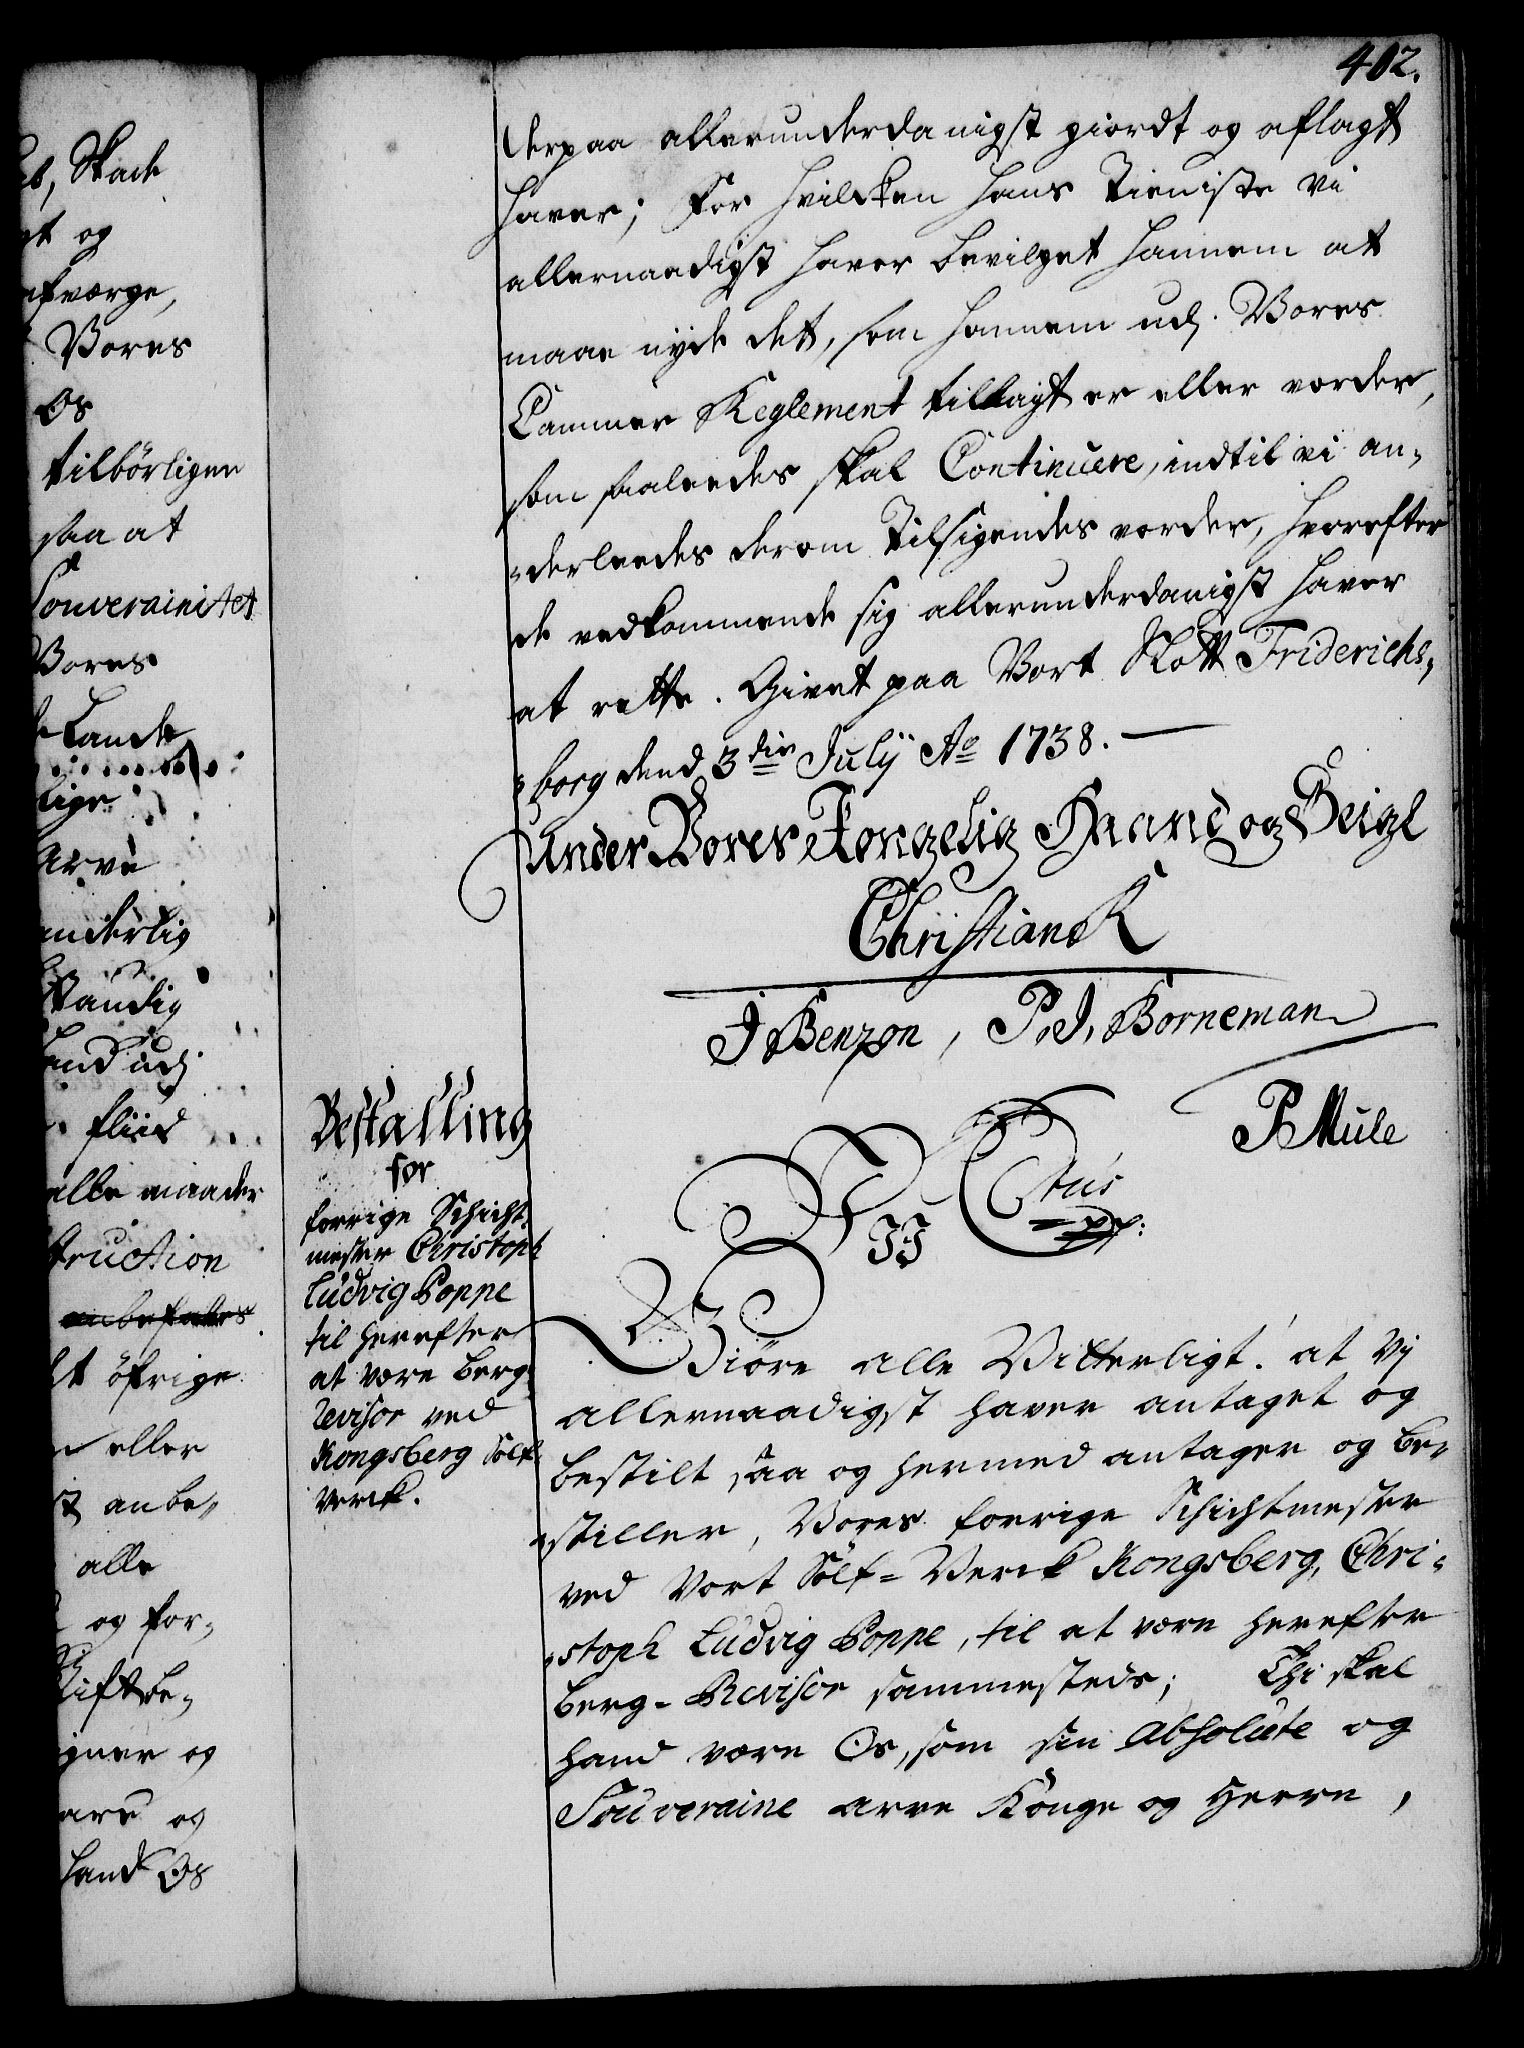 402.
derpaa allerunderdanigst giordt og aflagt
haver; For hvilcken hans Tieniste vi
allernaadigst haver bevilget hannem at
maae nyde det, som hannem udj Vores
Cammer Reglement tillagt er eller vorder,
som saaleedes skal Continuere, indtil vi an-
-derleedes derom tilsigendes vorder, hvorefter
de vedkommende sig allerunderdanigst haver
at rette. Givet paa Vort Slott Friderichs-
-borg dend 3die July Ao 1738.
Under Vores Kongelig Haand og Seigl
Christian R
J Benzon, P. J. Borneman
P Mule
Bestalling
for
forrige Schicht-
mester Christoph
Ludvig Poppe
til herefter
at være berg
Revisor ved
Kongsberg Sölf-
Verck.
Vj C 6tus
pp:
Giöre alle Vitterligt: at Vj
allernaadigst haver antaget og
bestilt saa og hermed antager og be-
-stiller, Vores forrige Schichtmester
ved Vort Sölf-Verck Kongsberg, Chri-
-stoph Ludvig Poppe, til at være herefter
berg-Revisor sammesteds; Thi skal
hand være Os, som sin absolute og
Souveraine arve Konge og Herre,
Skade
og
Vores
Os
tilbörligen
saa at
Souverainitet
Vores
Lande
arve
udj
fliid
alle maader
anbefales
öfrige
eller
anbe-
alle
og for-
og
og
hand Os